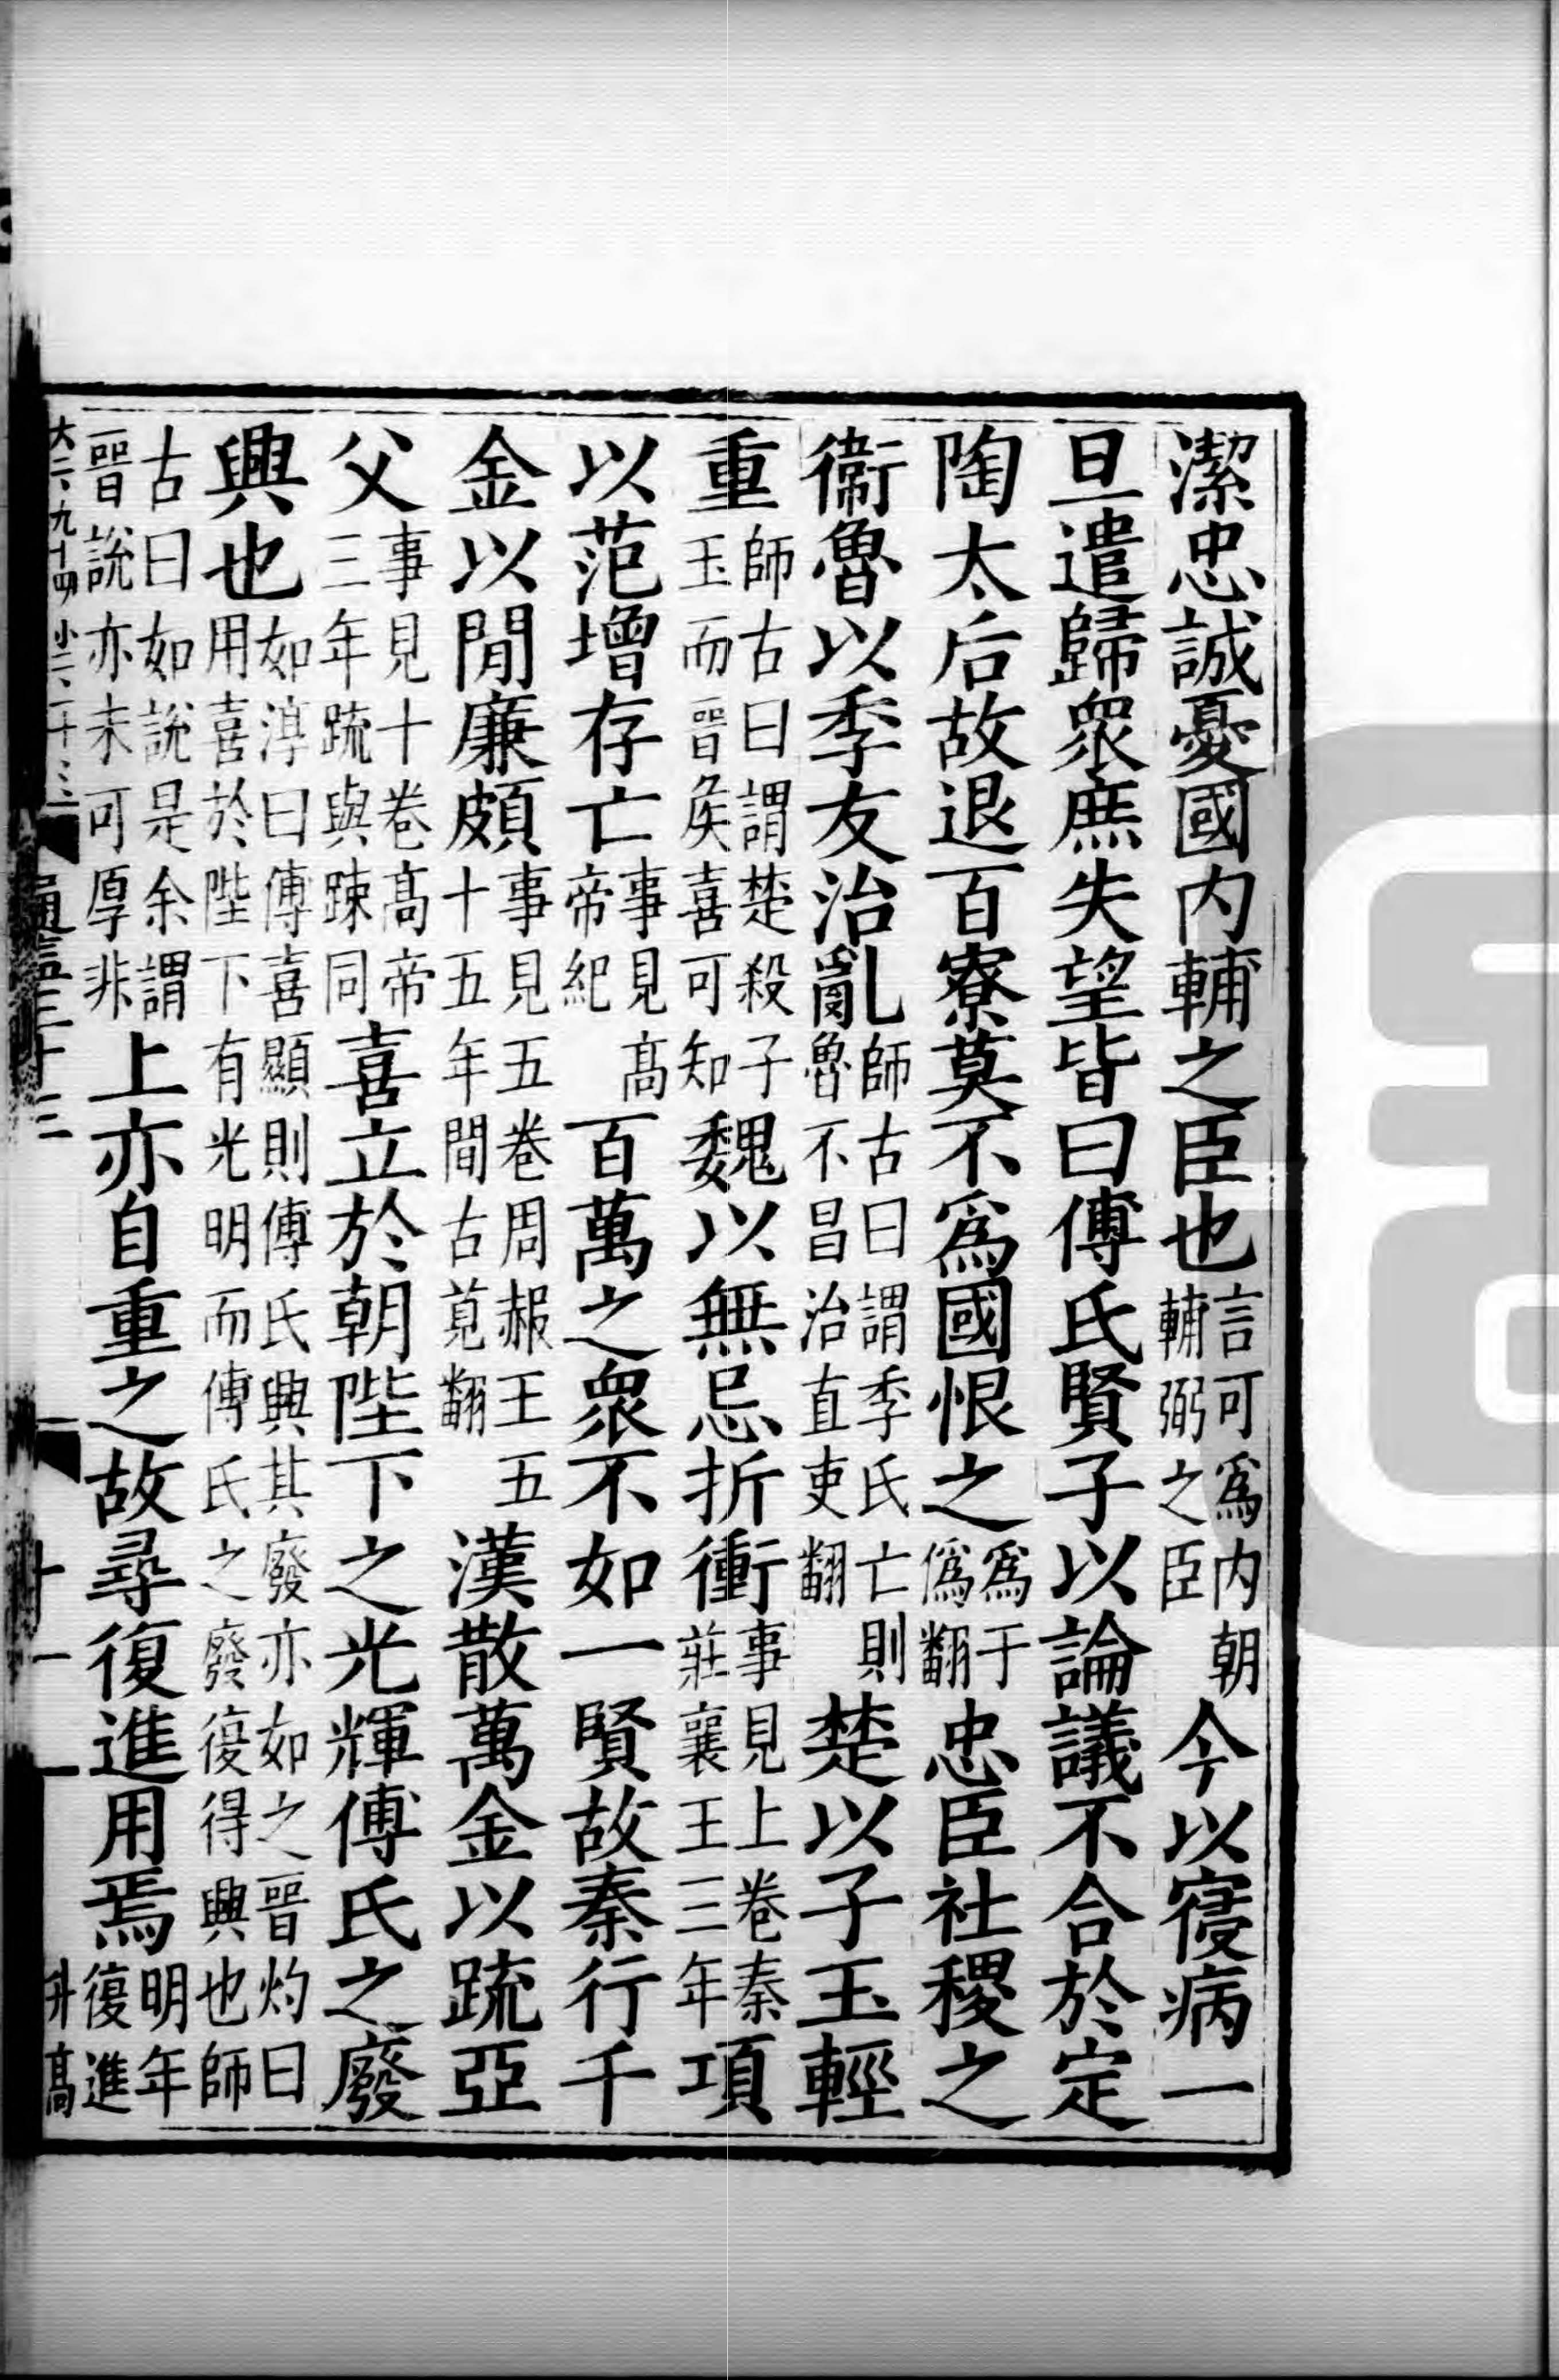 潔忠誠憂國内輔之臣也言可爲内朝輔弼之臣今以寑病一
旦遣歸衆庶失望皆曰傅氏賢子以論議不合於定
陶太后故退百寮莫不爲國恨之爲于僞翻忠臣社稷之
衞魯以季友治亂師古曰謂季氏亡則魯不昌治直吏翻楚以子玉輕
重師古曰謂楚殺子玉而晉矦喜可知魏以無忌折衝事見上卷秦莊襄王三年項
以范增存亡事見高帝紀百萬之衆不如一賢故秦行千
金以閒廉頗事見五卷周赧王五十五年間古莧翻漢散萬金以疏亞
父事見十卷高帝三年疏與踈同喜立於朝陛下之光輝傅氏之廢
興也如淳曰傅喜顯則傅氏興其廢亦如之晉灼曰用喜於陛下有光明而傅氏之廢復得興也師
古曰如說是余謂晉說亦未可厚非上亦自重之故尋復進用焉明年復進
大二、九十四 小二、二十、三
十一